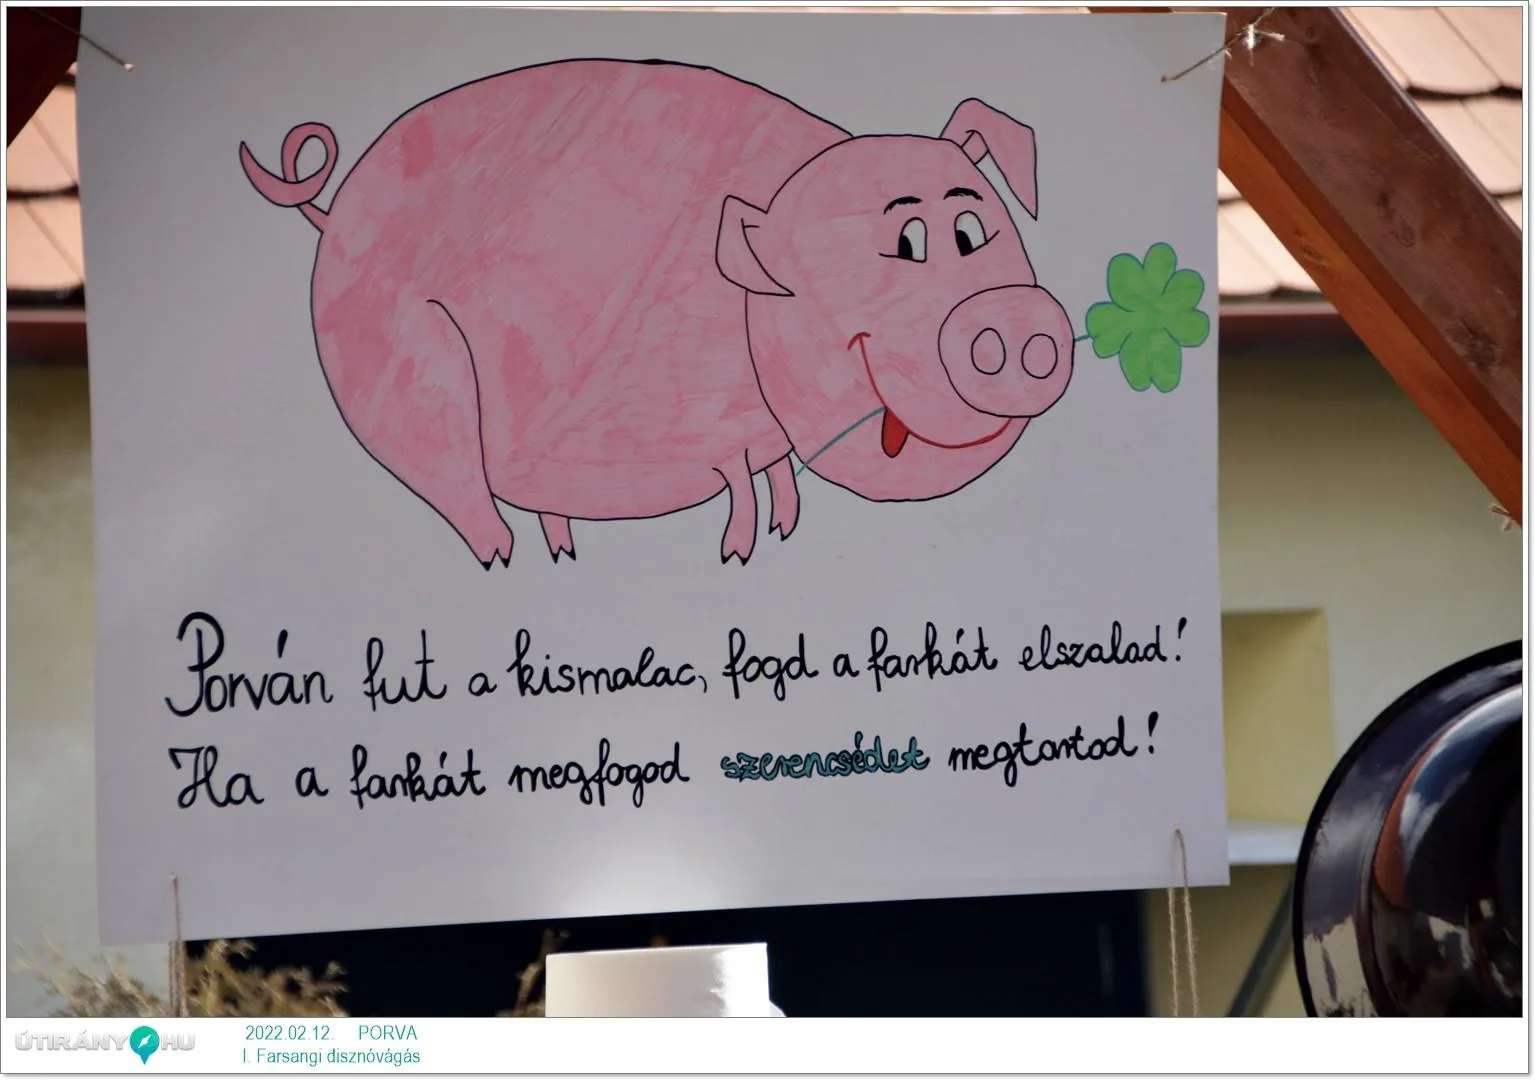 Porván fut a kismalac, fogd a farkát elszalad!
Ha a farkát megfogod szerencsédet megtartod!
ÚTIRÁNY HU
2022.02.12. PORVA
I. Farsangi disznóvágás